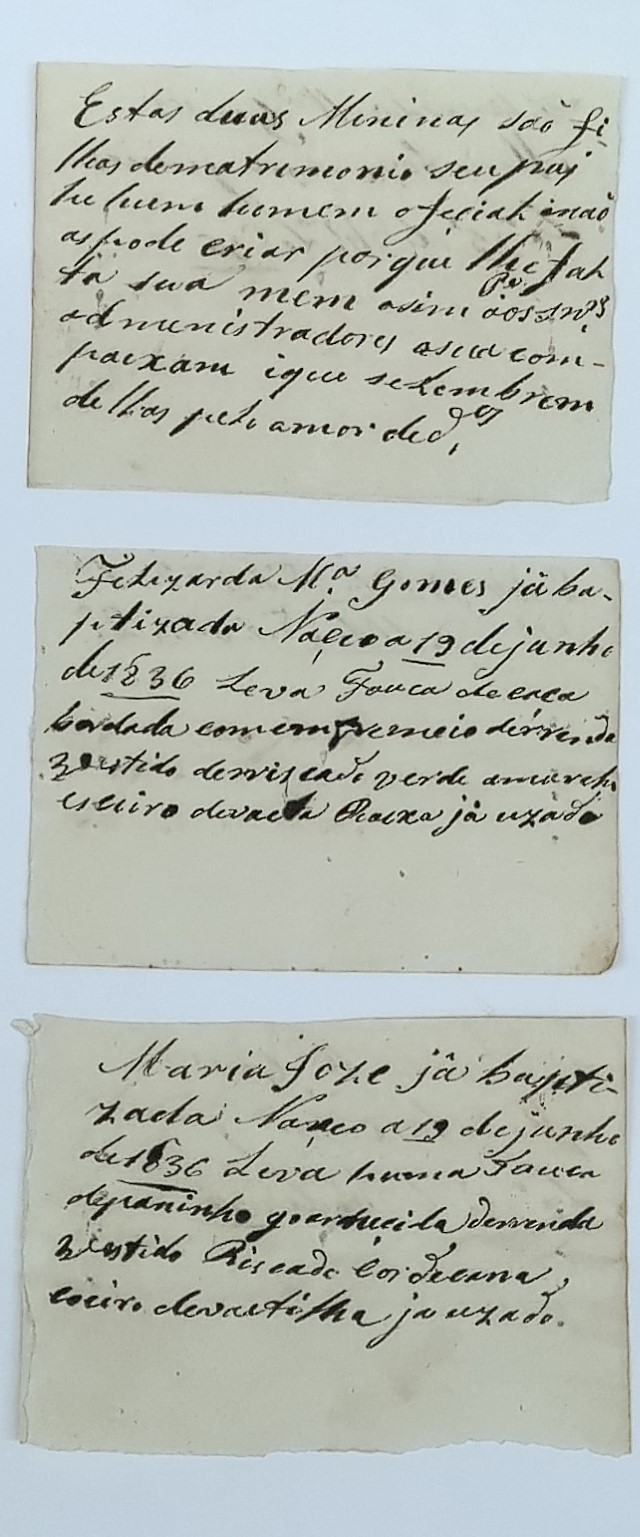 Estas duas Mininas saõ fi-
lhas dematrimonio seu pai
he hum homem ofecial inaõ
as pode criar porque lhe fal
ta sua mem asim Pe. aos Snrs
admenistradores asua com-
paixam ique selembrem
dellas pelo amor de Ds.
Felizarda Ma. Gomes já ba-
ptizada Naçeo a 19 dejunho
de 1836 Leva Touca decaça
bordada com emtremeio derrenda
2 vestido derriscado verde amarelo
eseiro devaeta Roixa já uzado
Maria Joze já bapti-
zada Naçeo a 19 dejunho
de 1836 Leva huma Touca
depaninho goarnecida derrenda
2 vestido Riscado Cor decana
coeiro devaetilha ja uzado.